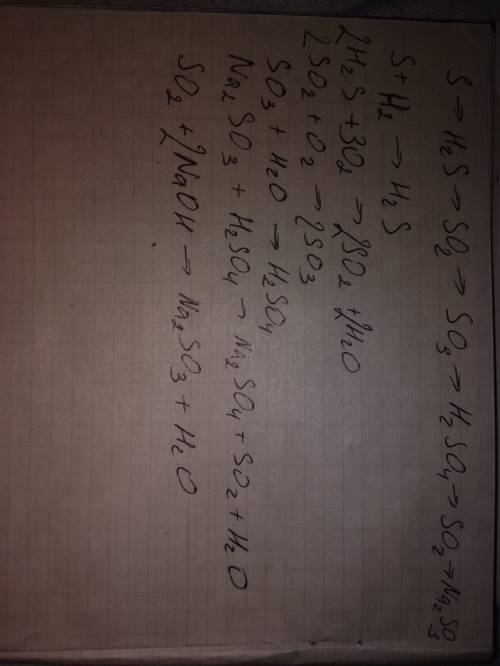 S → H₂S → SO₂ → SO₃ → H₂SO₄ → SO₂ → Na₂SO₃
S + H₂ → H₂S
2H₂S + 3O₂ → 2SO₂ + 2H₂O
2SO₂ + O₂ → 2SO₃
SO₃ + H₂O → H₂SO₄
Na₂SO₃ + H₂SO₄ → Na₂SO₄ + SO₂ + H₂O
SO₂ + 2NaOH → Na₂SO₃ + H₂O